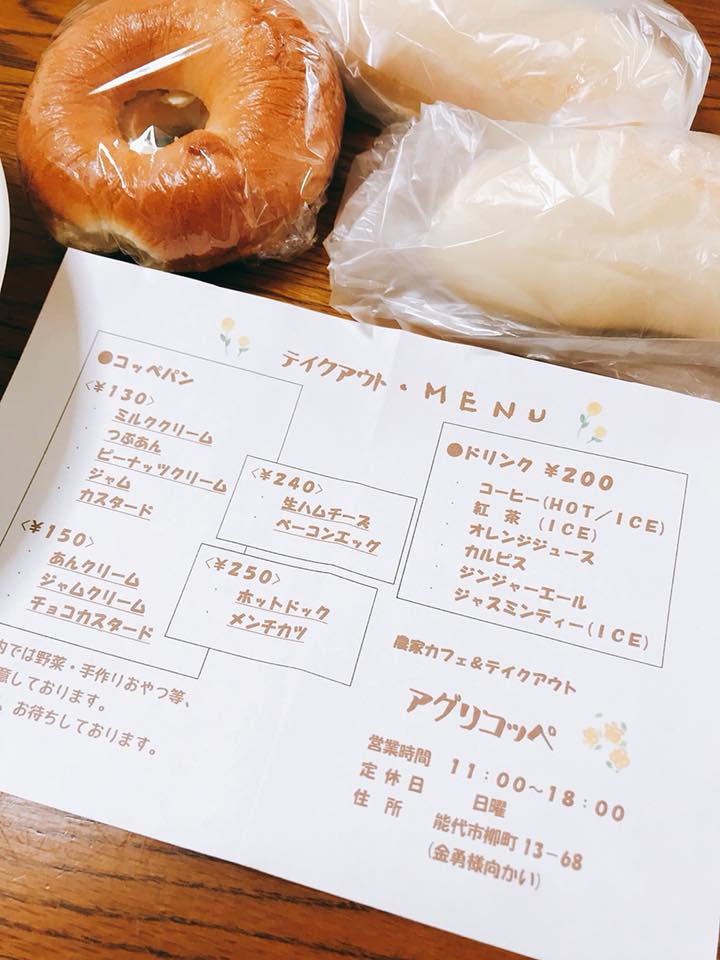 テイクアウト・MENU
●コッペパン
<¥130>
・ミルククリーム
・つぶあん
・ピーナッツクリーム
・ジャム
・カスタード
<¥150>
・あんクリーム
・ジャムクリーム
・チョコカスタード
<¥240>
・生ハムチーズ
・ベーコンエッグ
<¥250>
・ホットドック
・メンチカツ
●ドリンク ¥200
・コーヒー(HOT/ICE)
・紅 茶 (ICE)
・オレンジジュース
・カルピス
・ジンジャーエール
・ジャスミンティー(ICE)
内では野菜・手作りおやつ等、
意しております。
、お待ちしております。
農家カフェ&テイクアウト
アグリコッペ
営業時間 11:00~18:00
定 休 日 日曜
住 所 能代市柳町13-68
(金勇様向かい)